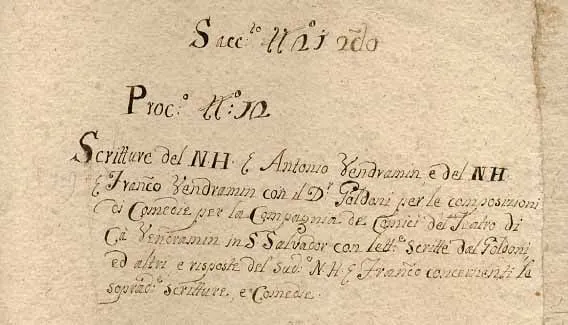 Sacc.to N.o 21 2do
Proc.o N.o 12
Scritture del NH. E Antonio Vendramin e del NH
E Fran.co Vendramin con il D.r Goldoni per le composizioni
di Comedie per la Compagnia de Comici del Teatro di
Cà Vendramin in S. Salvador con lett.e Scritte dal Goldoni
ed altri e risposte del Sud.o N.H. E Fran.co concernenti la
soprad.e Scritture, e Comedie.